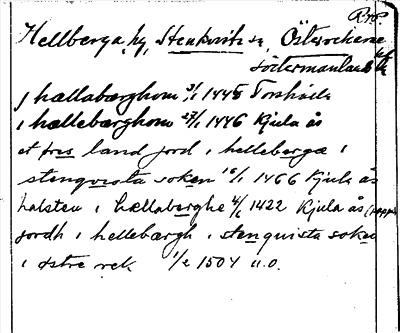 Rrö.
Hellberga, hg, Stenkvista sn, Österrekarne
södermanlands
j hællabærghom 3/1 1445 Torshälla
i hællebærghom 27/1 1446 Kjula ås
et øres land jord i hellebergæ i
stenqvista soken 16/1 1466 Kjula ås
halsten i hællaberghe 4/1 1422 Kjula ås (papper)
jordh i hellebærgh i stenquista soken
i østre rek 1/2 1504 u.o.